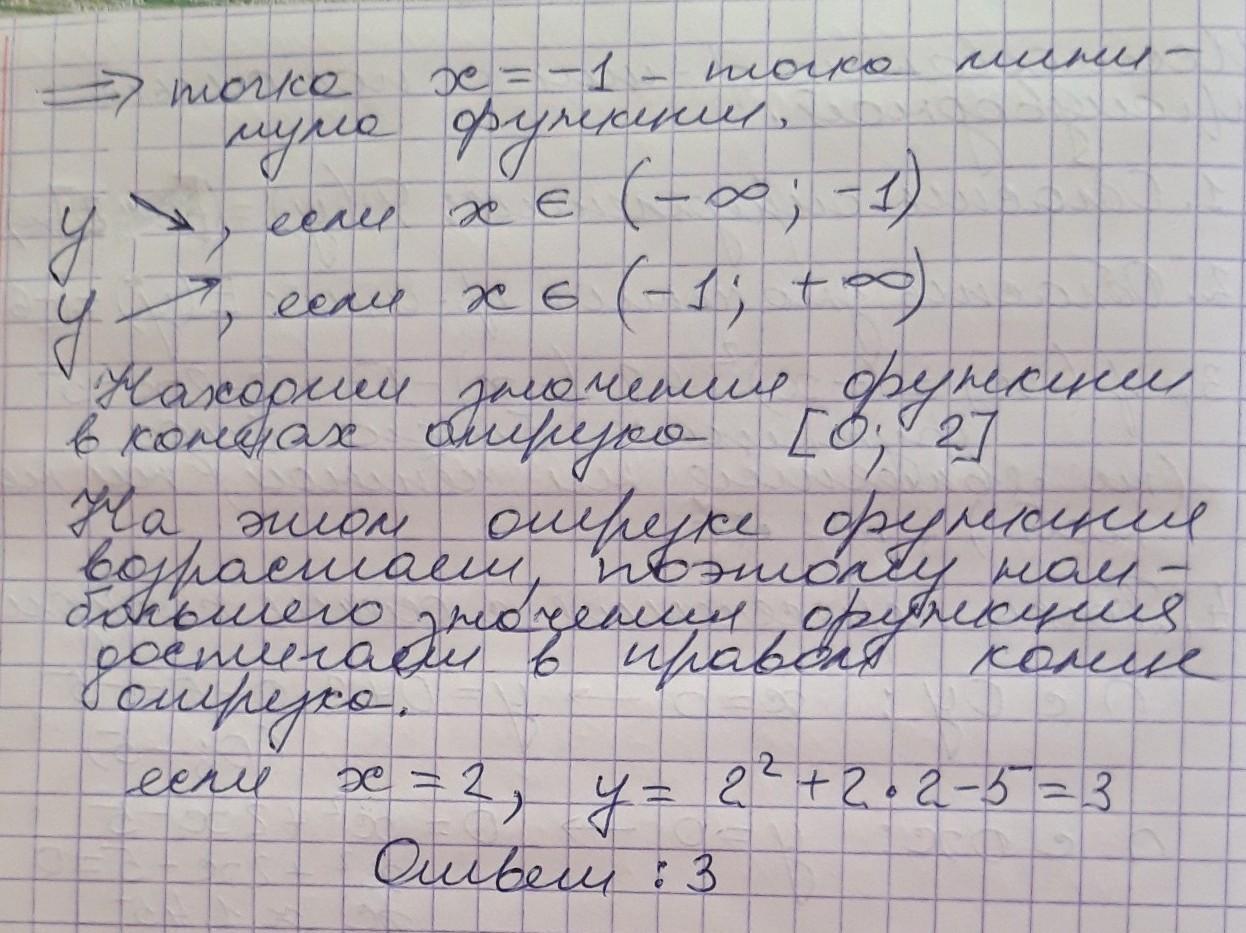 ⇒ точка x = -1 - точка мини-
мума функции.
y ↘, если x ∈ (-∞; -1)
y ↗, если x ∈ (-1; +∞)
Находим значения функции
в концах отрезка [0; 2]
На этом отрезке функция
возрастает, поэтому наи-
большего значения функция
достигает в правом конце
отрезка.
если x = 2, y = 2² + 2·2-5 = 3
Ответ: 3